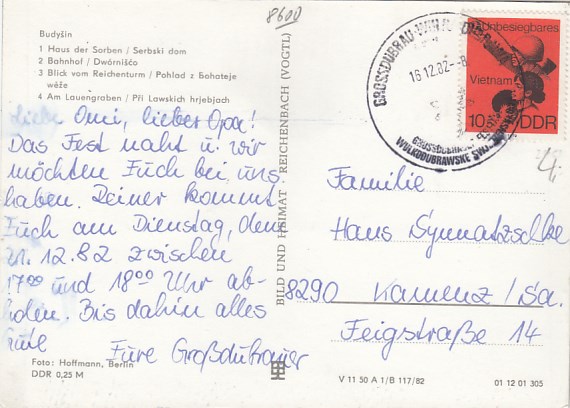 8600
Budyšin
1 Haus der Sorben / Serbski dom
2 Bahnhof / Dwórnišćo
3 Blick vom Reichenturm / Pohlad z Bohateje
wěže
4 Am Lauengraben / Při Lawskich hrjebjach
Liebe Omi, lieber Opa!
Das Fest naht u. wir
möchten Euch bei uns
haben. Reiner kommt
Euch am Dienstag, dem
21. 12. 82 zwischen
17⁰⁰ und 18⁰⁰ Uhr ab-
holen. Bis dahin alles
Gute Eure Großdubrauer
Foto: Hoffmann, Berlin
DDR 0,25 M
BILD UND HEIMAT REICHENBACH (VOGTL)
GROSSDUBRAU
16.12.82-8
WULKODUBRAWSKE
Unbesiegbares
Vietnam
10 DDR
4
Familie
Hans Symmatzschke
8290 Kamenz/Sa.
Feigstraße 14
V 11 50 A 1/B 117/82
01 12 01 305